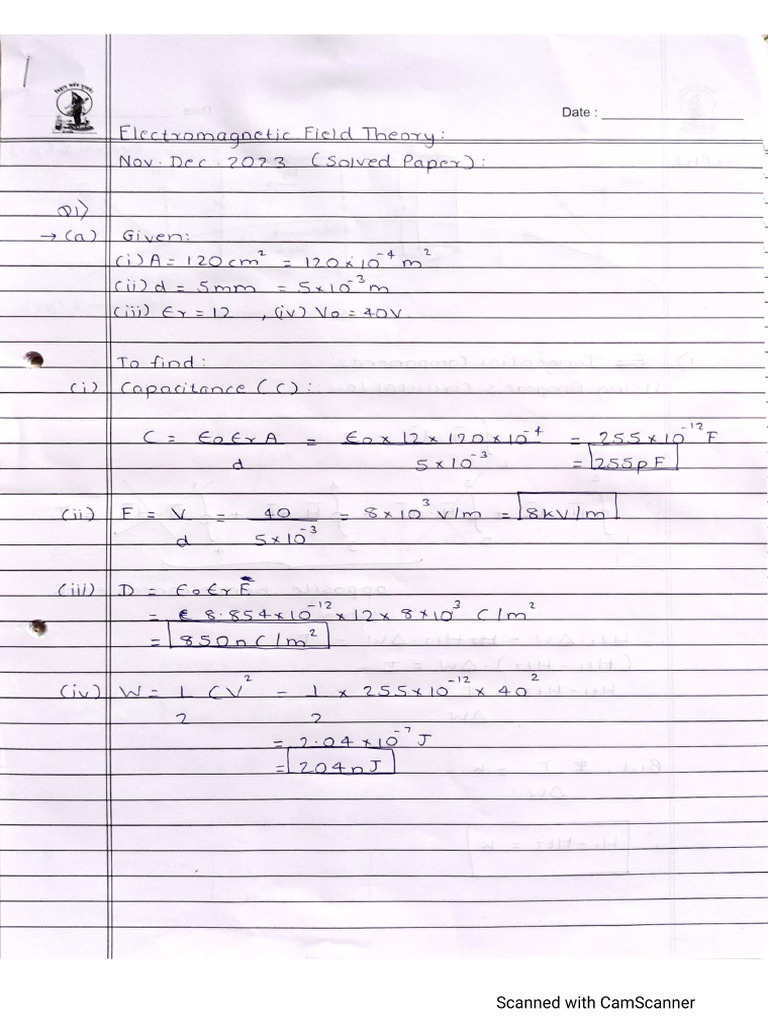 1
Date : ____________
Electromagnetic Field Theory:
Nov. Dec. 2023 (Solved Paper):
Q1)
→ (a) Given:
(i) A = 120 cm² = 120×10⁻⁴ m²
(ii) d = 5mm = 5×10⁻³ m
(iii) Er = 12 , (iv) Vo = 40V
To find:
(i) Capacitance (C):
C = ЄoЄrA / d = Єo × 12 × 120 × 10⁻⁴ / 5×10⁻³ = 255×10⁻¹² F
= 255pF
(ii) E = V / d = 40 / 5×10⁻³ = 8×10³ V/m = 8kV/m
(iii) D = ЄoЄrE
= 8.854×10⁻¹²×12×8×10³ C/m²
= 850nC/m²
(iv) W = 1/2 CV² = 1/2 × 255×10⁻¹² × 40²
= 2.04×10⁻⁷ J
= 204nJ
Scanned with CamScanner